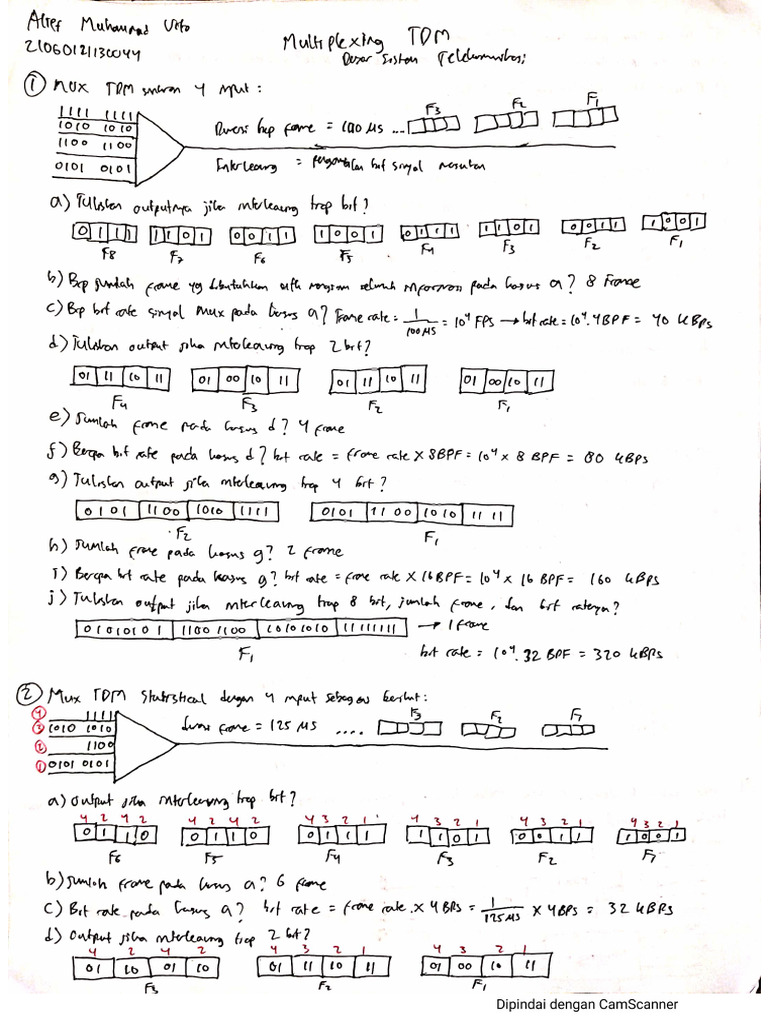 Alief Muhammad Vito
21060121130044
Multiplexing TDM
Dasar Sistem Telekomunikasi
① MUX TDM sinkron 4 input :
1111 1111
1010 1010
1100 1100
0101 0101
Durasi tiap frame = 100 µs ... F3 F2 F1
Interleaving = pengambilan bit sinyal masukan
a) Tuliskan outputnya jika interleaving tiap bit?
0 1 1 1 1 1 0 1 0 0 1 1 1 0 0 1 0 1 1 1 1 1 0 1 0 0 1 1 1 0 0 1
F8 F7 F6 F5 F4 F3 F2 F1
b) Brp jumlah frame yg dibutuhkan utk mengirim seluruh informasi pada kasus a? 8 Frame
c) Brp bit rate sinyal mux pada kasus a? Frame rate = 1/100 µs = 10⁴ FPS → bit rate = 10⁴ . 4 BPF = 40 kBPS
d) Tuliskan output jika interleaving tiap 2 bit?
01 11 10 11 01 00 10 11 01 11 10 11 01 00 10 11
F4 F3 F2 F1
e) Jumlah frame pada kasus d? 4 frame
f) Berapa bit rate pada kasus d? bit rate = frame rate × 8BPF = 10⁴ × 8 BPF = 80 kBPS
g) Tuliskan output jika interleaving tiap 4 bit?
0101 1100 1010 1111 0101 1100 1010 1111
F2 F1
h) Jumlah frame pada kasus g? 2 frame
i) Berapa bit rate pada kasus g? bit rate = frame rate × 16 BPF = 10⁴ × 16 BPF = 160 kBPS
j) Tuliskan output jika interleaving tiap 8 bit, jumlah frame, dan bit ratenya?
01010101 11001100 10101010 11111111 → 1 frame
F1
bit rate = 10⁴ . 32 BPF = 320 kBPS
② Mux TDM Statistical dengan 4 input sebagai berikut:
④ 1111
③ 1010 1010
② 1100
① 0101 0101
durasi frame = 125 µs .... F3 F2 F1
a) output jika interleaving tiap bit?
4 2 4 2 4 2 4 2 4 3 2 1 4 3 2 1 4 3 2 1 4 3 2 1
0 1 1 0 0 1 1 0 0 1 1 1 1 1 0 1 0 0 1 1 1 0 0 1
F6 F5 F4 F3 F2 F1
b) Jumlah frame pada kasus a? 6 frame
c) Bit rate pada kasus a? bit rate = frame rate × 4 BPS = 1/125 µs × 4 BPS = 32 kBPS
d) Output jika interleaving tiap 2 bit?
4 2 4 2 4 3 2 1 4 3 2 1
01 10 01 10 01 11 10 11 01 00 10 11
F3 F2 F1
Dipindai dengan CamScanner